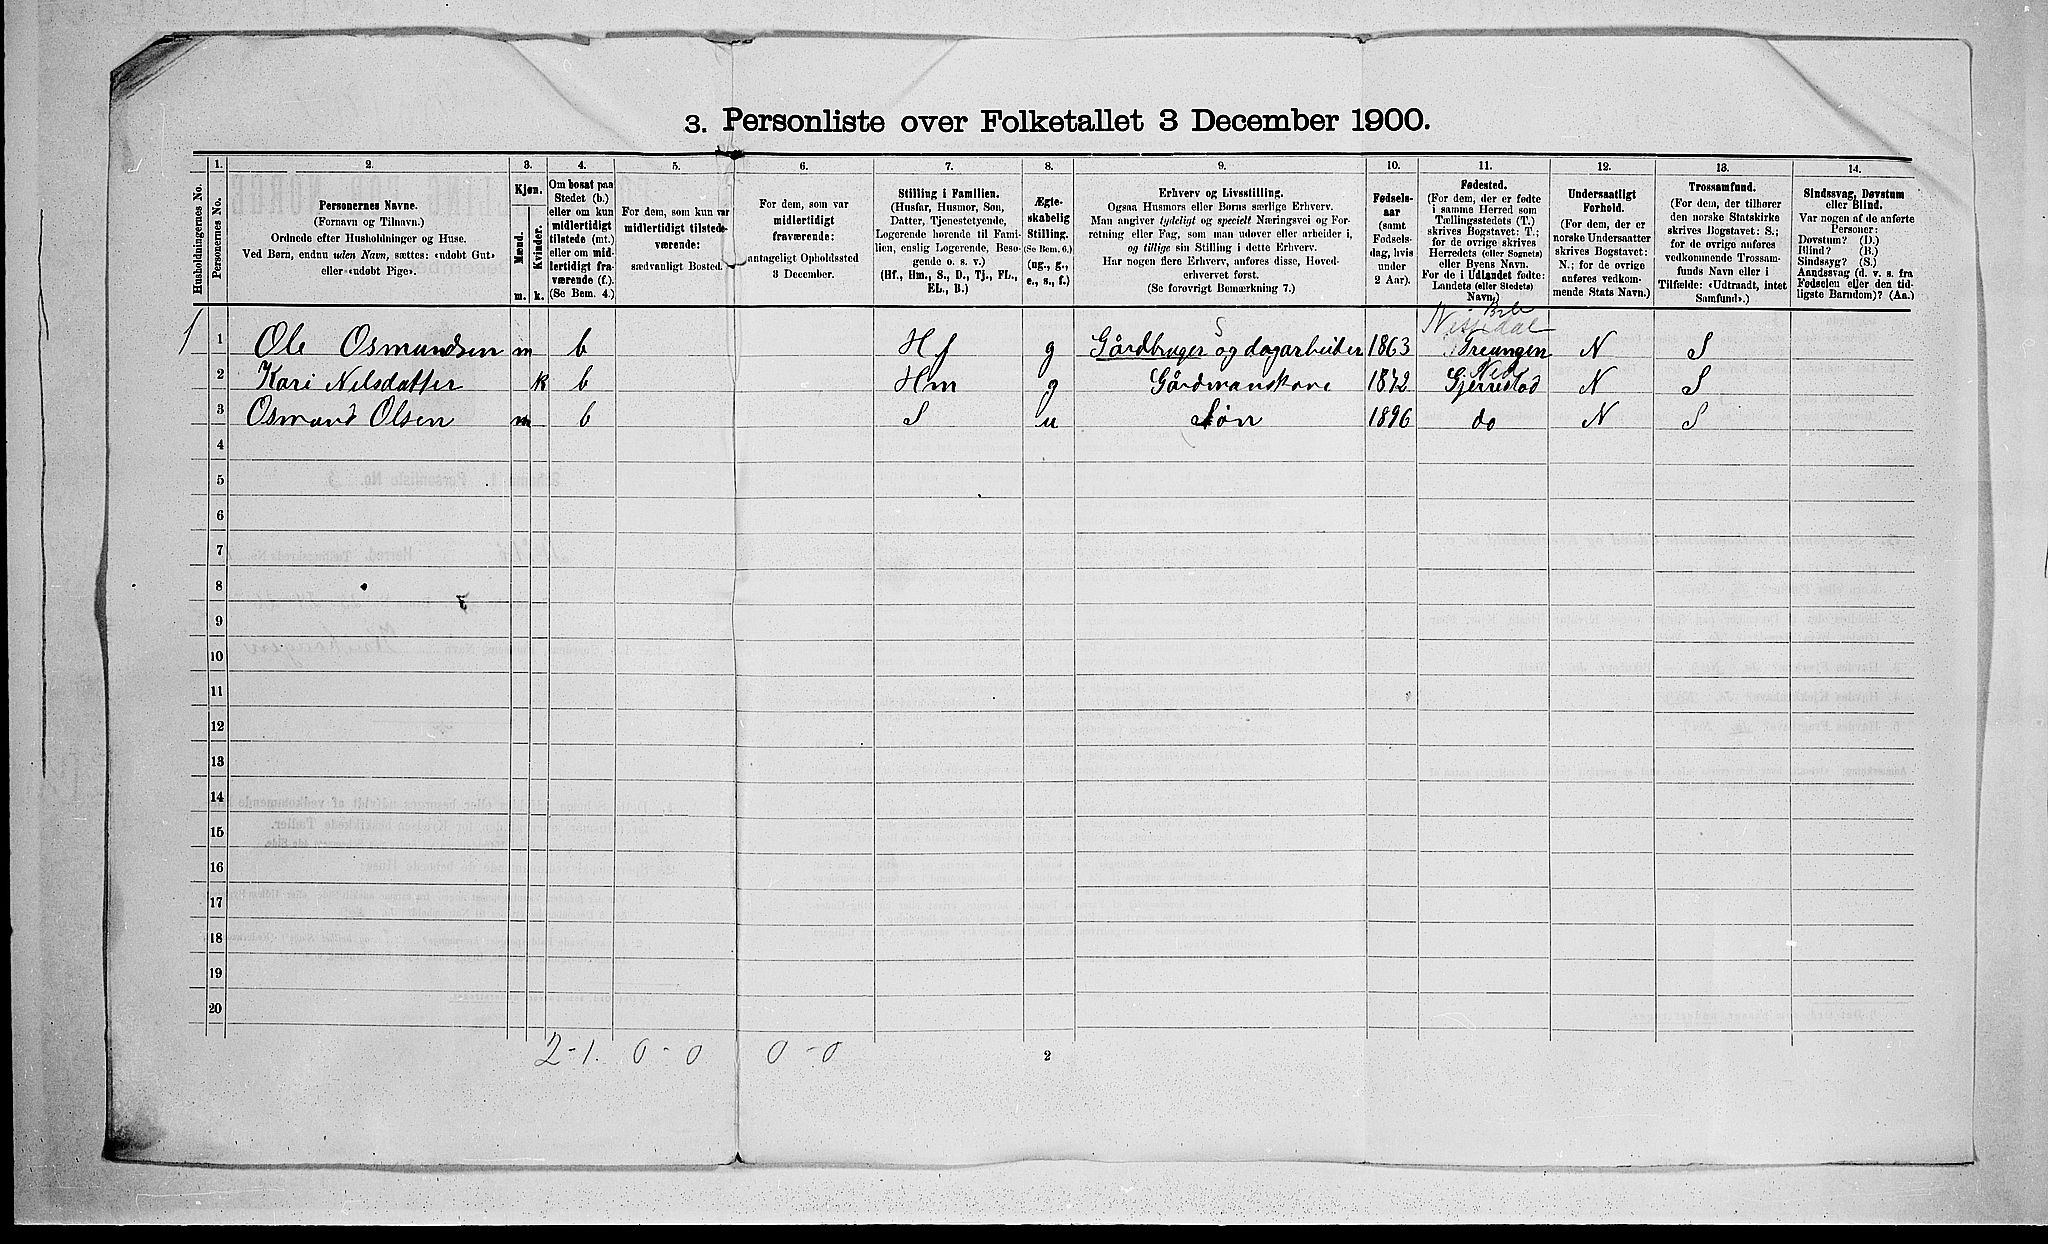 3. Personliste over Folketallet 3 December 1900.
1. 2. 3. 4. 5. 6. 7. 8. 9. 10. 11. 12. 13. 14.
Husholdningernes No.
Personernes No.
Personernes Navne.
(Fornavn og Tilnavn.)
Ordnede efter Husholdninger og Huse.
Ved Børn, endnu uden Navn, sættes: «udøbt Gut»
eller «udøbt Pige».
Kjøn.
Mænd.
Kvinder.
m. k.
Om bosat paa
Stedet (b.)
eller om kun
midlertidigt
tilstede (mt.)
eller om mid-
lertidigt fra-
værende (f.).
(Se Bem. 4.)
For dem, som kun var
midlertidigt tilstede-
værende:
sædvanligt Bosted.
For dem, som var
midlertidigt
fraværende:
antageligt Opholdssted
3 December.
Stilling i Familien.
(Husfar, Husmor, Søn,
Datter, Tjenestetyende,
Logerende hørende til Fami-
lien, enslig Logerende, Besø-
gende o. s. v.)
(Hf., Hm., S., D., Tj., FL.,
EL., B.)
Ægte-
skabelig
Stilling.
(Se Bem. 6.)
(ug., g.,
e., s., f.)
Erhverv og Livsstilling.
Ogsaa Husmors eller Børns særlige Erhverv.
Man angiver tydeligt og specielt Næringsvei og For-
retning eller Fag, som man udøver eller arbeider i,
og tillige sin Stilling i dette Erhverv.
Har nogen flere Erhverv, anføres disse, Hoved-
erhvervet først.
(Se forøvrigt Bemærkning 7.)
Fødsels-
aar
(samt
Fødsels-
dag, hvis
under
2 Aar).
Fødested.
(For dem, der er fødte
i samme Herred som
Tællingsstedets (T.)
skrives Bogstavet: T.;
for de øvrige skrives
Herredets (eller Sognets)
eller Byens Navn.
For de i Udlandet fødte:
Landets (eller Stedets)
Navn.)
Undersaatligt
Forhold.
(For dem, der er
norske Undersaatter
skrives Bogstavet:
N.; for de øvrige
anføres vedkom-
mende Stats Navn.)
Trossamfund.
(For dem, der tilhører
den norske Statskirke
skrives Bogstavet: S.;
for de øvrige anføres
vedkommende Trossam-
funds Navn eller i
Tilfælde: «Udtraadt, intet
Samfund».)
Sindssvag, Døvstum
eller Blind.
Var nogen af de anførte
Personer:
Døvstum? (D.)
Blind? (B.)
Sindssyg? (S.)
Aandssvag (d. v. s. fra
Fødselen eller den tid-
ligste Barndom)? (Aa.)
Nissedal
1 1 Ole Osmundsen m b Hf g Gårdbruger og dagarbeider 1863 Treungen N S
2 Kari Nilsdatter k b Hm g Gårdmanskone 1872 Gjerrestad N S
3 Osmund Olsen m b S u Søn 1896 do N S
4
5
6
7
8
9
10
11
12
13
14
15
16
17
18
19
20
2-1. 0-0 0-0 2